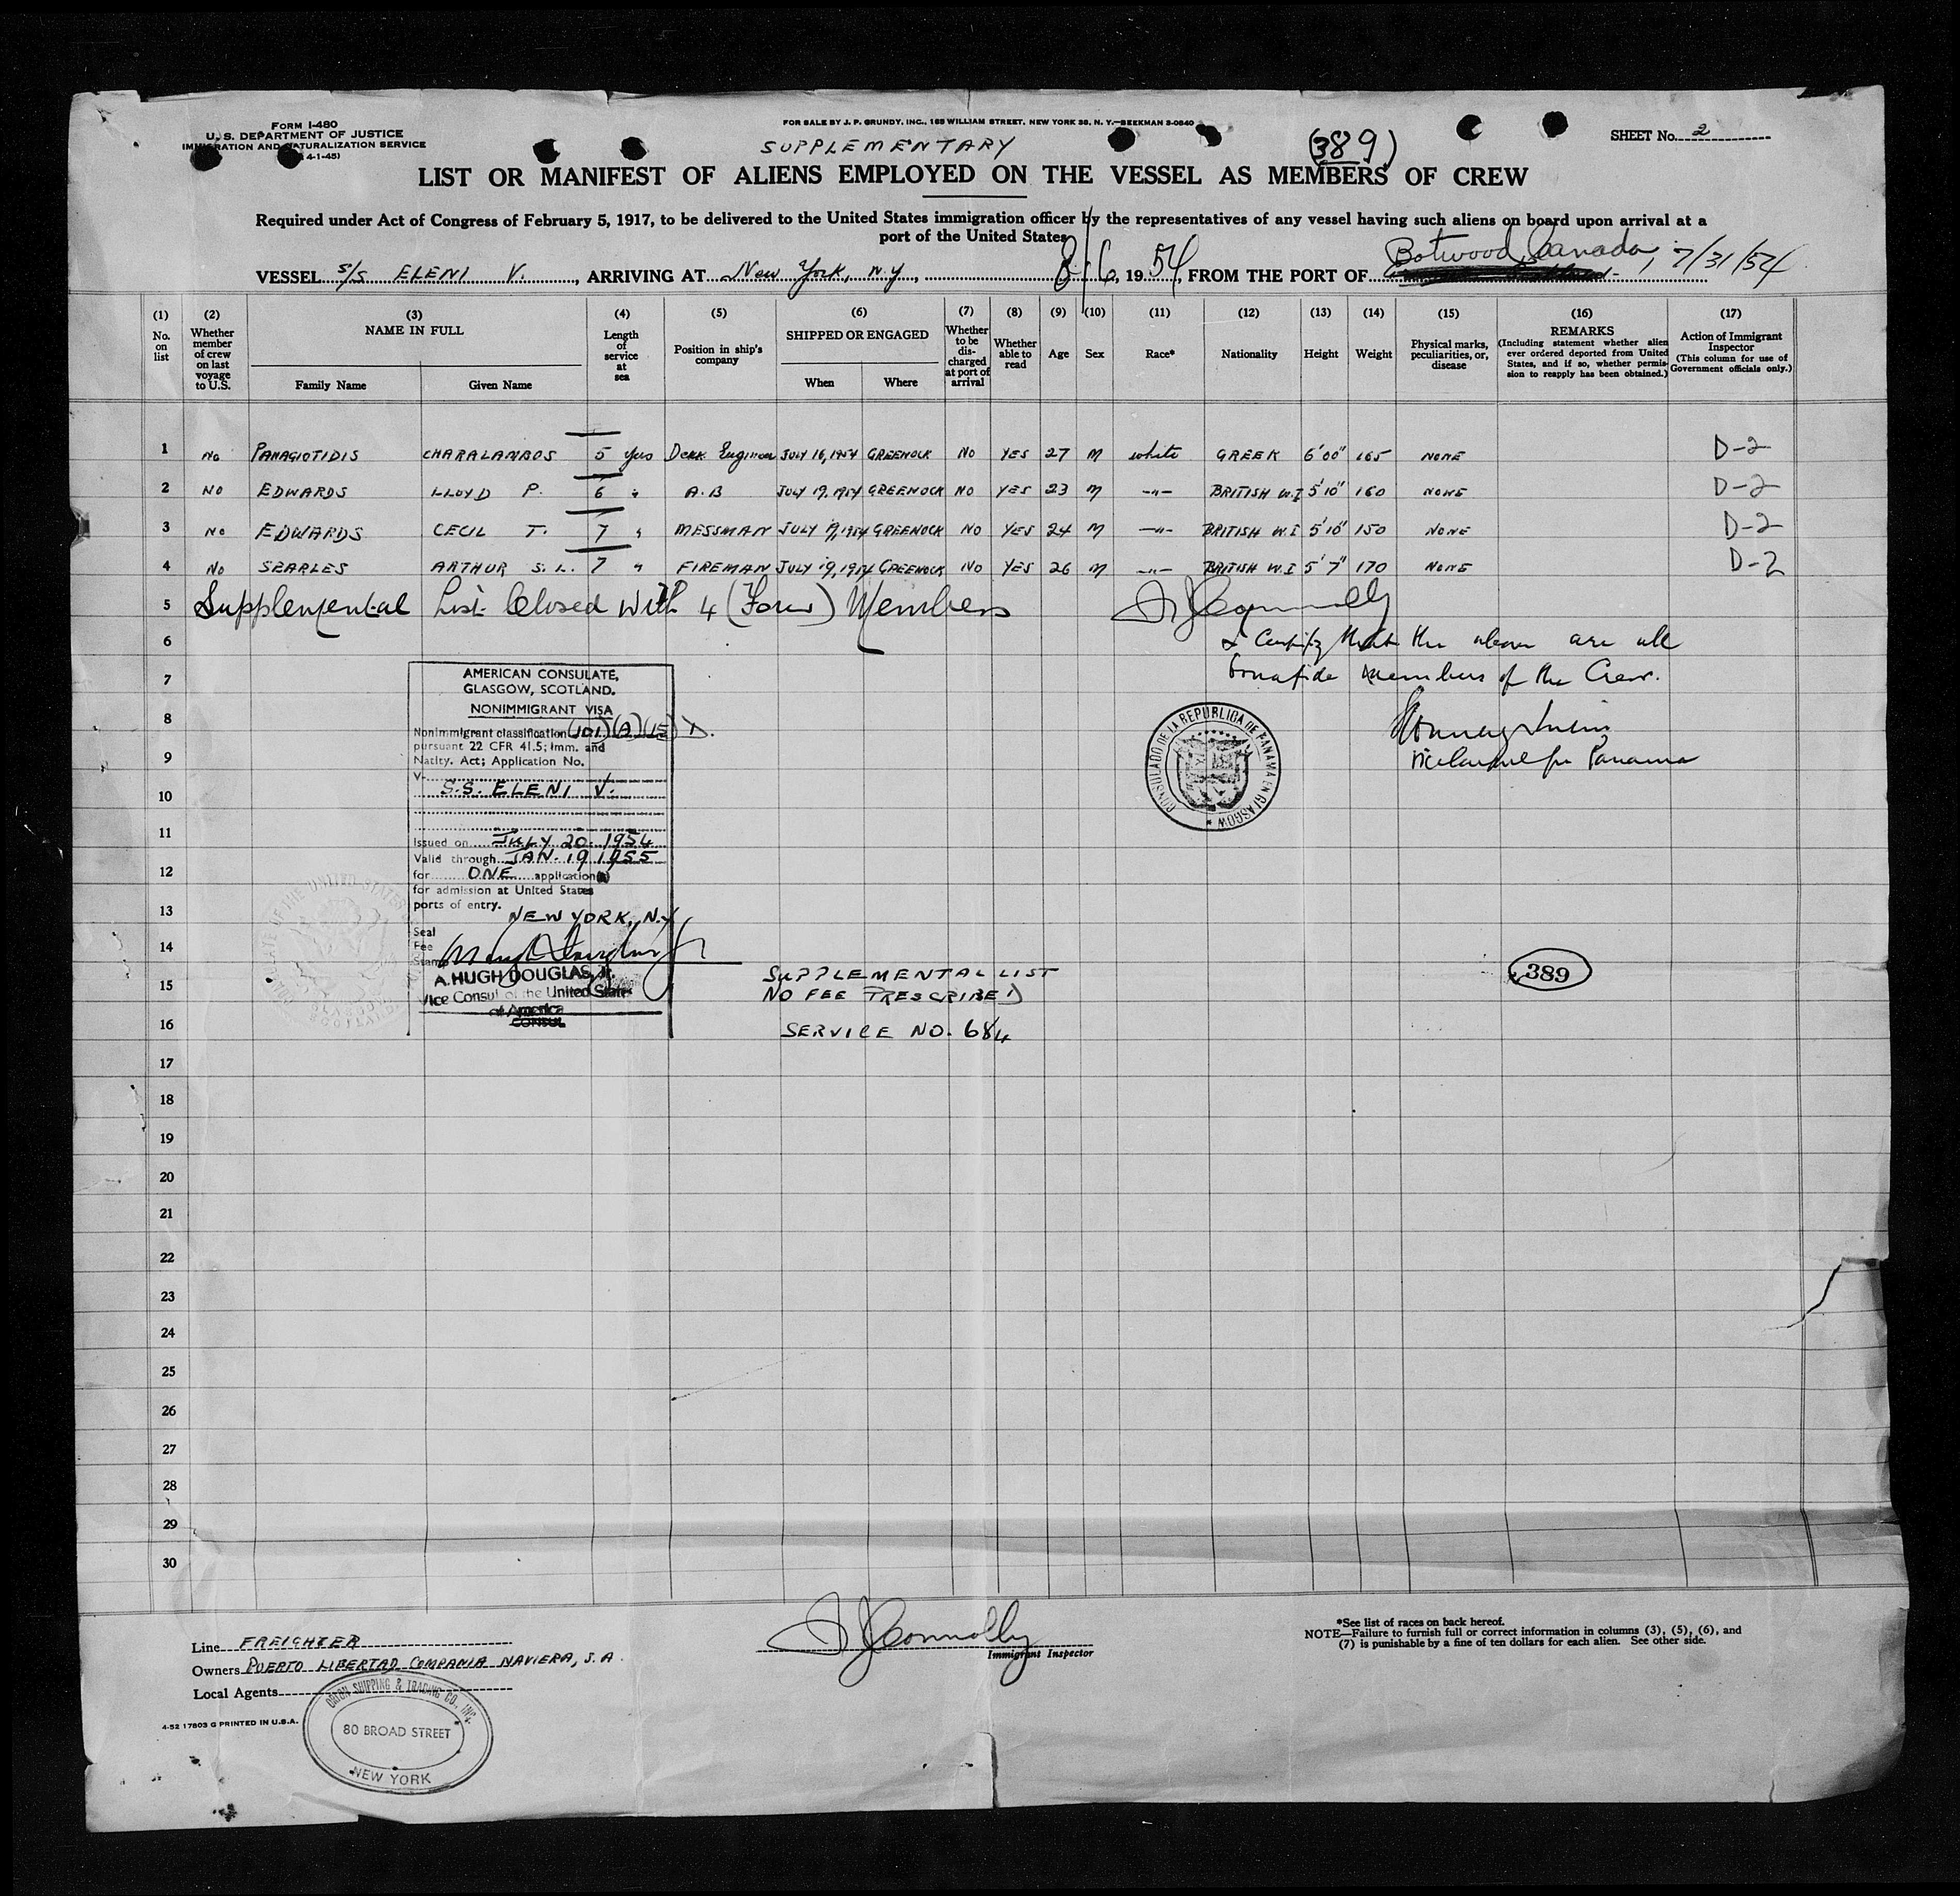 FORM I-480
U. S. DEPARTMENT OF JUSTICE
IMMIGRATION AND NATURALIZATION SERVICE
4-1-45)
FOR SALE BY J. P. GRUNDY, INC., 165 WILLIAM STREET, NEW YORK 38, N. Y.—BEEKMAN 3-0840
SHEET No. 2
SUPPLEMENTARY
(389)
LIST OR MANIFEST OF ALIENS EMPLOYED ON THE VESSEL AS MEMBERS OF CREW
Required under Act of Congress of February 5, 1917, to be delivered to the United States immigration officer by the representatives of any vessel having such aliens on board upon arrival at a
port of the United States
VESSEL S/S ELENI V. , ARRIVING AT New York, N.Y., 8/6, 1954, FROM THE PORT OF Botwood, Canada, 7/31/54
(1) No. on list
(2) Whether member of crew on last voyage to U.S.
(3) NAME IN FULL
Family Name
Given Name
(4) Length of service at sea
(5) Position in ship's company
(6) SHIPPED OR ENGAGED
When
Where
(7) Whether to be discharged at port of arrival
(8) Whether able to read
(9) Age
(10) Sex
(11) Race*
(12) Nationality
(13) Height
(14) Weight
(15) Physical marks, peculiarities, or, disease
(16) REMARKS (Including statement whether alien ever ordered deported from United States, and if so, whether permission to reapply has been obtained.)
(17) Action of Immigrant Inspector (This column for use of Government officials only.)
1 No PANAGIOTIDIS CHARALANBOS 5 yrs Deck Engineer JULY 16, 1954 GREENOCK NO YES 27 M white GREEK 6'00" 165 NONE D-2
2 NO EDWARDS LLOYD P. 6 " A.B JULY 19, 1954 GREENOCK NO YES 23 M -"- BRITISH W.I 5'10" 160 NONE D-2
3 NO EDWARDS CECIL T. 7 " MESSMAN JULY 19, 1954 GREENOCK NO YES 24 M -"- BRITISH W.I 5'10" 150 NONE D-2
4 NO SEARLES ARTHUR S. L. 7 " FIREMAN JULY 19, 1954 GREENOCK NO YES 26 M -"- BRITISH W.I 5'7" 170 NONE D-2
5 Supplemental List Closed With 4 (Four) Members
6 I Certify that the above are all
7 bonafide members of the Crew.
8
9 Vice Consul for Panama
CONSULADO DE LA REPUBLICA DE PANAMA EN GLASGOW
AMERICAN CONSULATE,
GLASGOW, SCOTLAND.
NONIMMIGRANT VISA
Nonimmigrant classification (101)(A)(15) D.
pursuant 22 CFR 41.5; Imm. and
Natlty. Act; Application No.
V-
S.S. ELENI V.
Issued on JULY 20 1954
Valid through JAN. 19 1955
for ONE application(s)
for admission at United States
ports of entry.
NEW YORK, N.Y
Seal
Fee
Stamp
A. HUGH DOUGLAS, Jr.
Vice Consul of the United States
of America
CONSUL
10
11
12
13
14
15
16
SUPPLEMENTAL LIST
NO FEE PRESCRIBED
SERVICE NO. 684
389
17
18
19
20
21
22
23
24
25
26
27
28
29
30
Line FREIGHTER
Owners PUERTO LIBERTAD COMPANIA NAVIERA, S.A.
Local Agents
ORION SHIPPING & TRADING CO., INC.
80 BROAD STREET
NEW YORK
4-52 17803 G PRINTED IN U.S.A.
Connolly
Immigrant Inspector
*See list of races on back hereof.
NOTE—Failure to furnish full or correct information in columns (3), (5), (6), and
(7) is punishable by a fine of ten dollars for each alien. See other side.